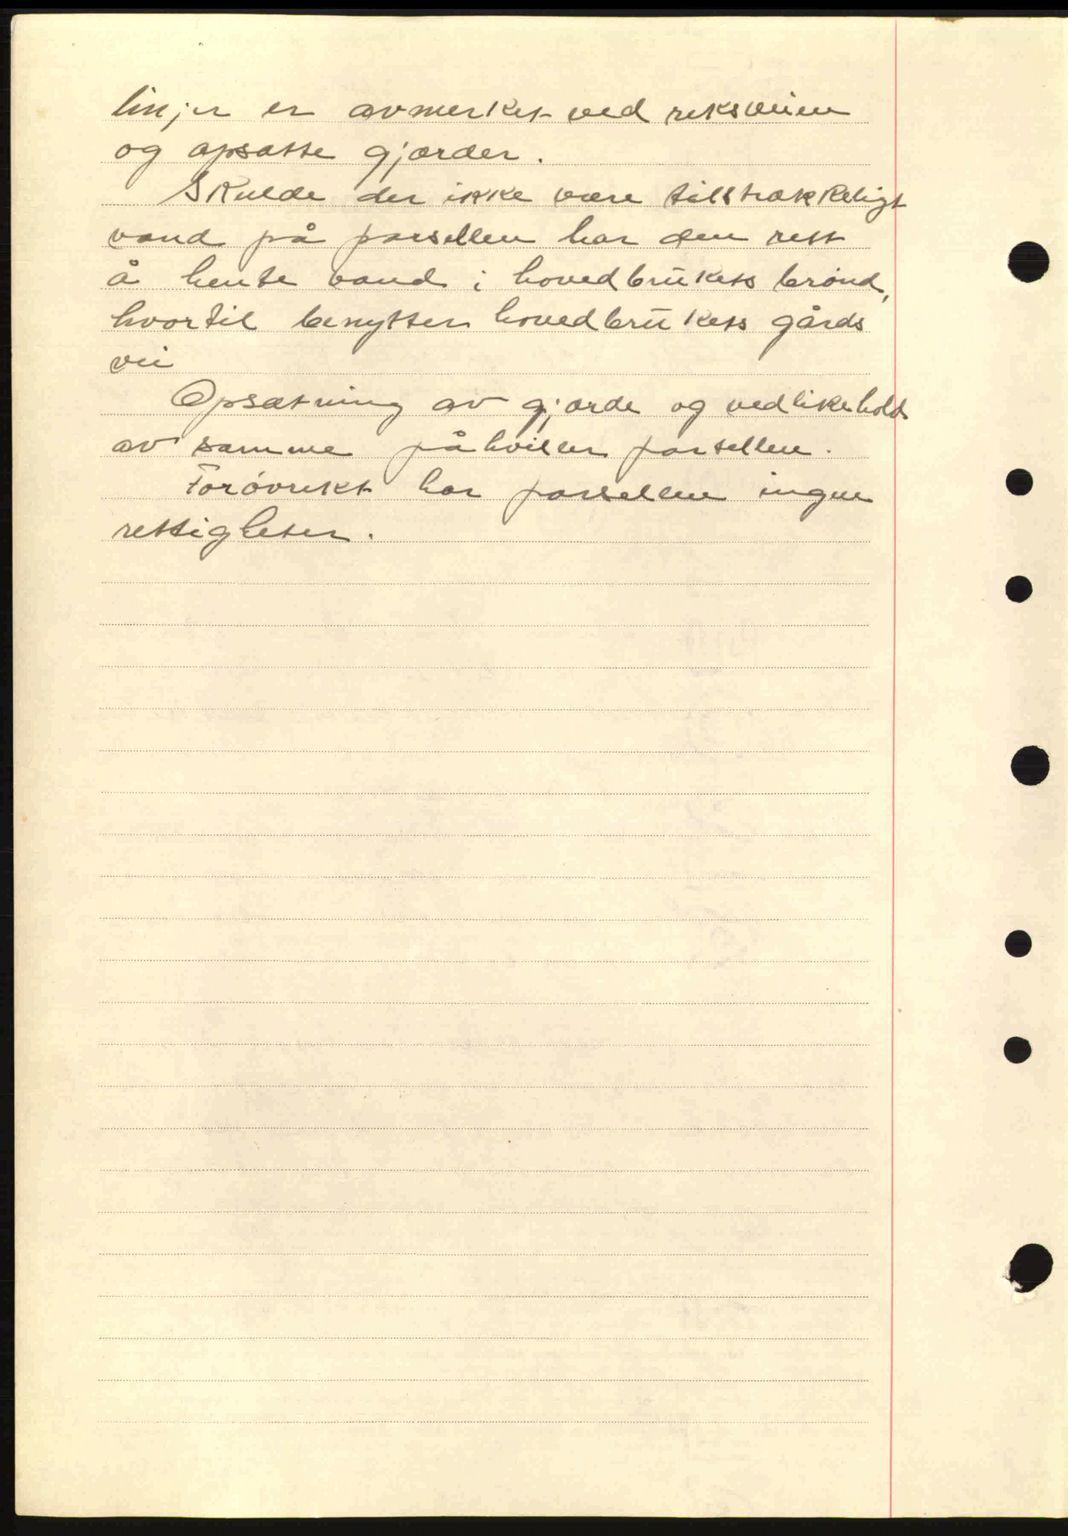 linjer er avmerket ved riksveien
og opsatte gjærder.
Skulde der ikke være tilstrækkeligt
vand på parsellen har den rett
å hente vand i hovedbrukets brønd,
hvortil benyttes hovedbrukets gårds
vei
Opsætning av gjærde og vedlikehold
av samme påhviler parsellen.
Forøvrikt har parsellen ingen
rettigheter.